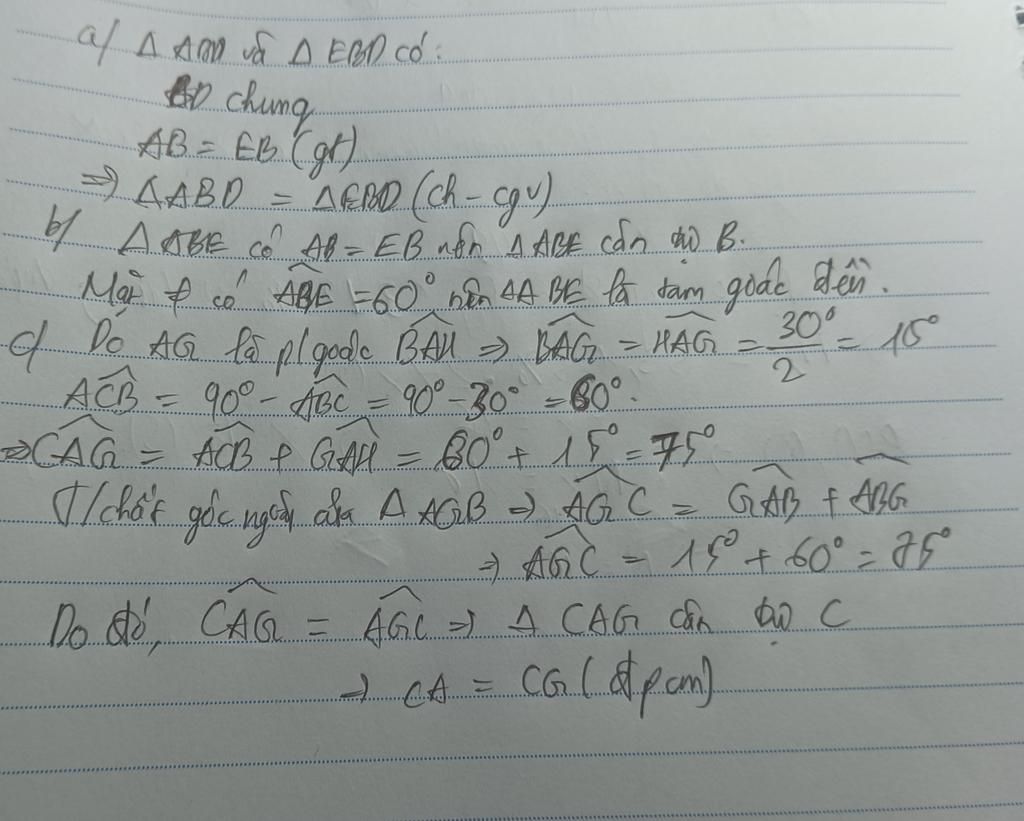 a/ Δ ABD và Δ EBD có:
BD chung
AB = EB (gt)
=> ΔABD = ΔEBD (ch - cgv)
b/ Δ ABE có AB = EB nên Δ ABE cân tại B.
Mặt ≠ có ABE = 60° nên ΔABE là tam goác đều.
c/ Do AG là p/goác BAH => BAG = HAG = 30°/2 = 15°
ACB = 90° - ABC = 90° - 30° = 60°.
=> CAG = ACB + GAH = 60° + 15° = 75°
T/chất góc ngoài của Δ AGB => AGC = GAB + ABG
=> AGC = 15° + 60° = 75°
Do đó, CAG = AGC => Δ CAG cân tại C
=> CA = CG (đpcm)